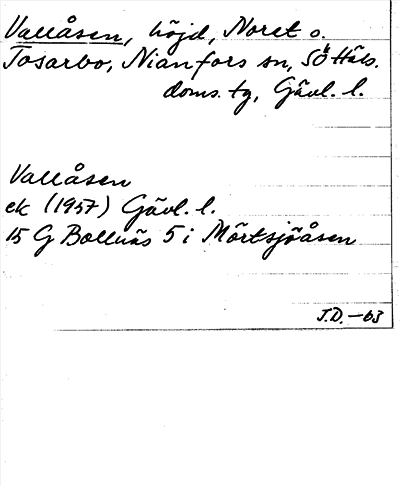 Vallåsen, höjd, Noret o.
Tosarbo, Nianfors sn, SöHäls.
doms. tg, Gävl. l.
Vallåsen
ek (1957) Gävl. l.
15 G Bollnäs 5 i Mörtsjöåsen
J.D. -63